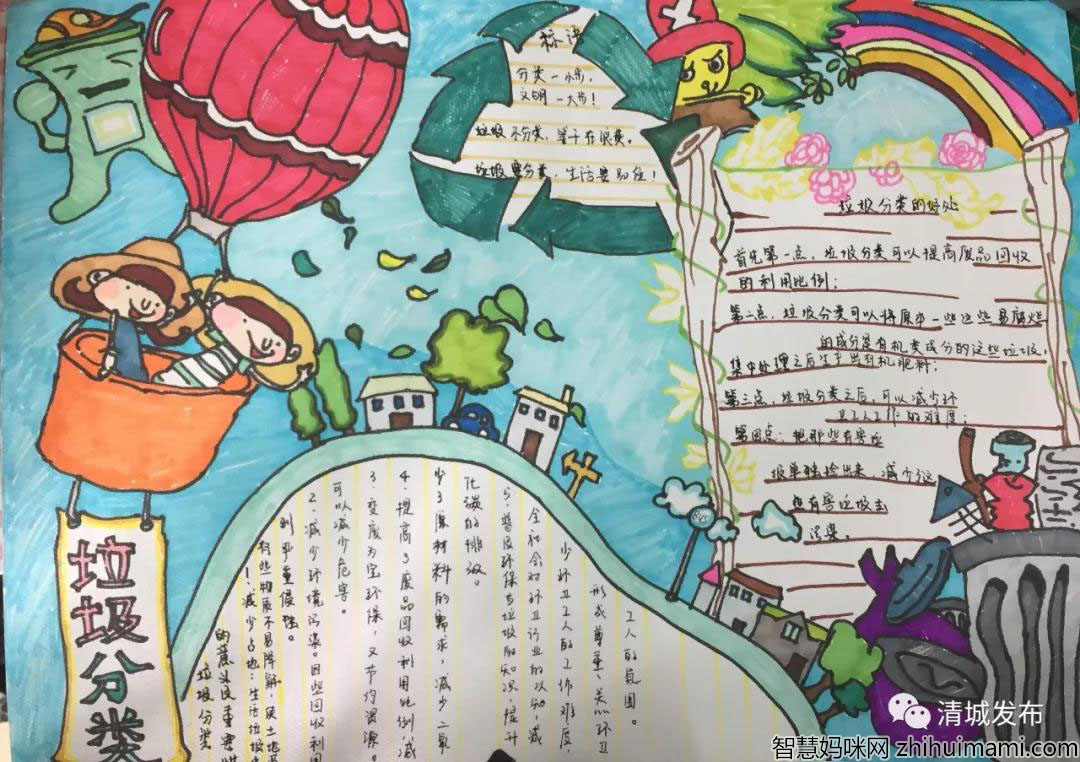 标语
分类一小步，
文明一大步！
垃圾不分类，等于在浪费。
垃圾要分类，生活要别住！
垃圾分类的好处
首先第一点，垃圾分类可以提高废品回收
的利用比例；
第二点，垃圾分类可以将原本一些这些易腐烂
的成分是有机类成分的这些垃圾，
集中处理之后生产出有机肥料；
第三点，垃圾分类之后，可以减少环
卫工人工作的难度；
第四点：把那些有害垃
圾单独捡出来，减少这
些有害垃圾去
污染。
BUS
垃圾分类
垃圾分类
的意义及重要性
1、减少占地：生活垃圾中
有些物质不易降解，使土地受
到严重侵蚀。
2、减少环境污染。因此回收利用
可以减少危害。
3、变废为宝环保，又节约资源。
4、提高了废品回收利用比例，减
少了原材料的需求，减少二氧
化碳的排放。
5、普及环保与垃圾的知识，提升
全社会对环卫行业的认知，减
少环卫工人的工作难度，
形成尊重、关心环卫
工人的氛围。
清城发布
智慧妈咪网 zhihuimami.com